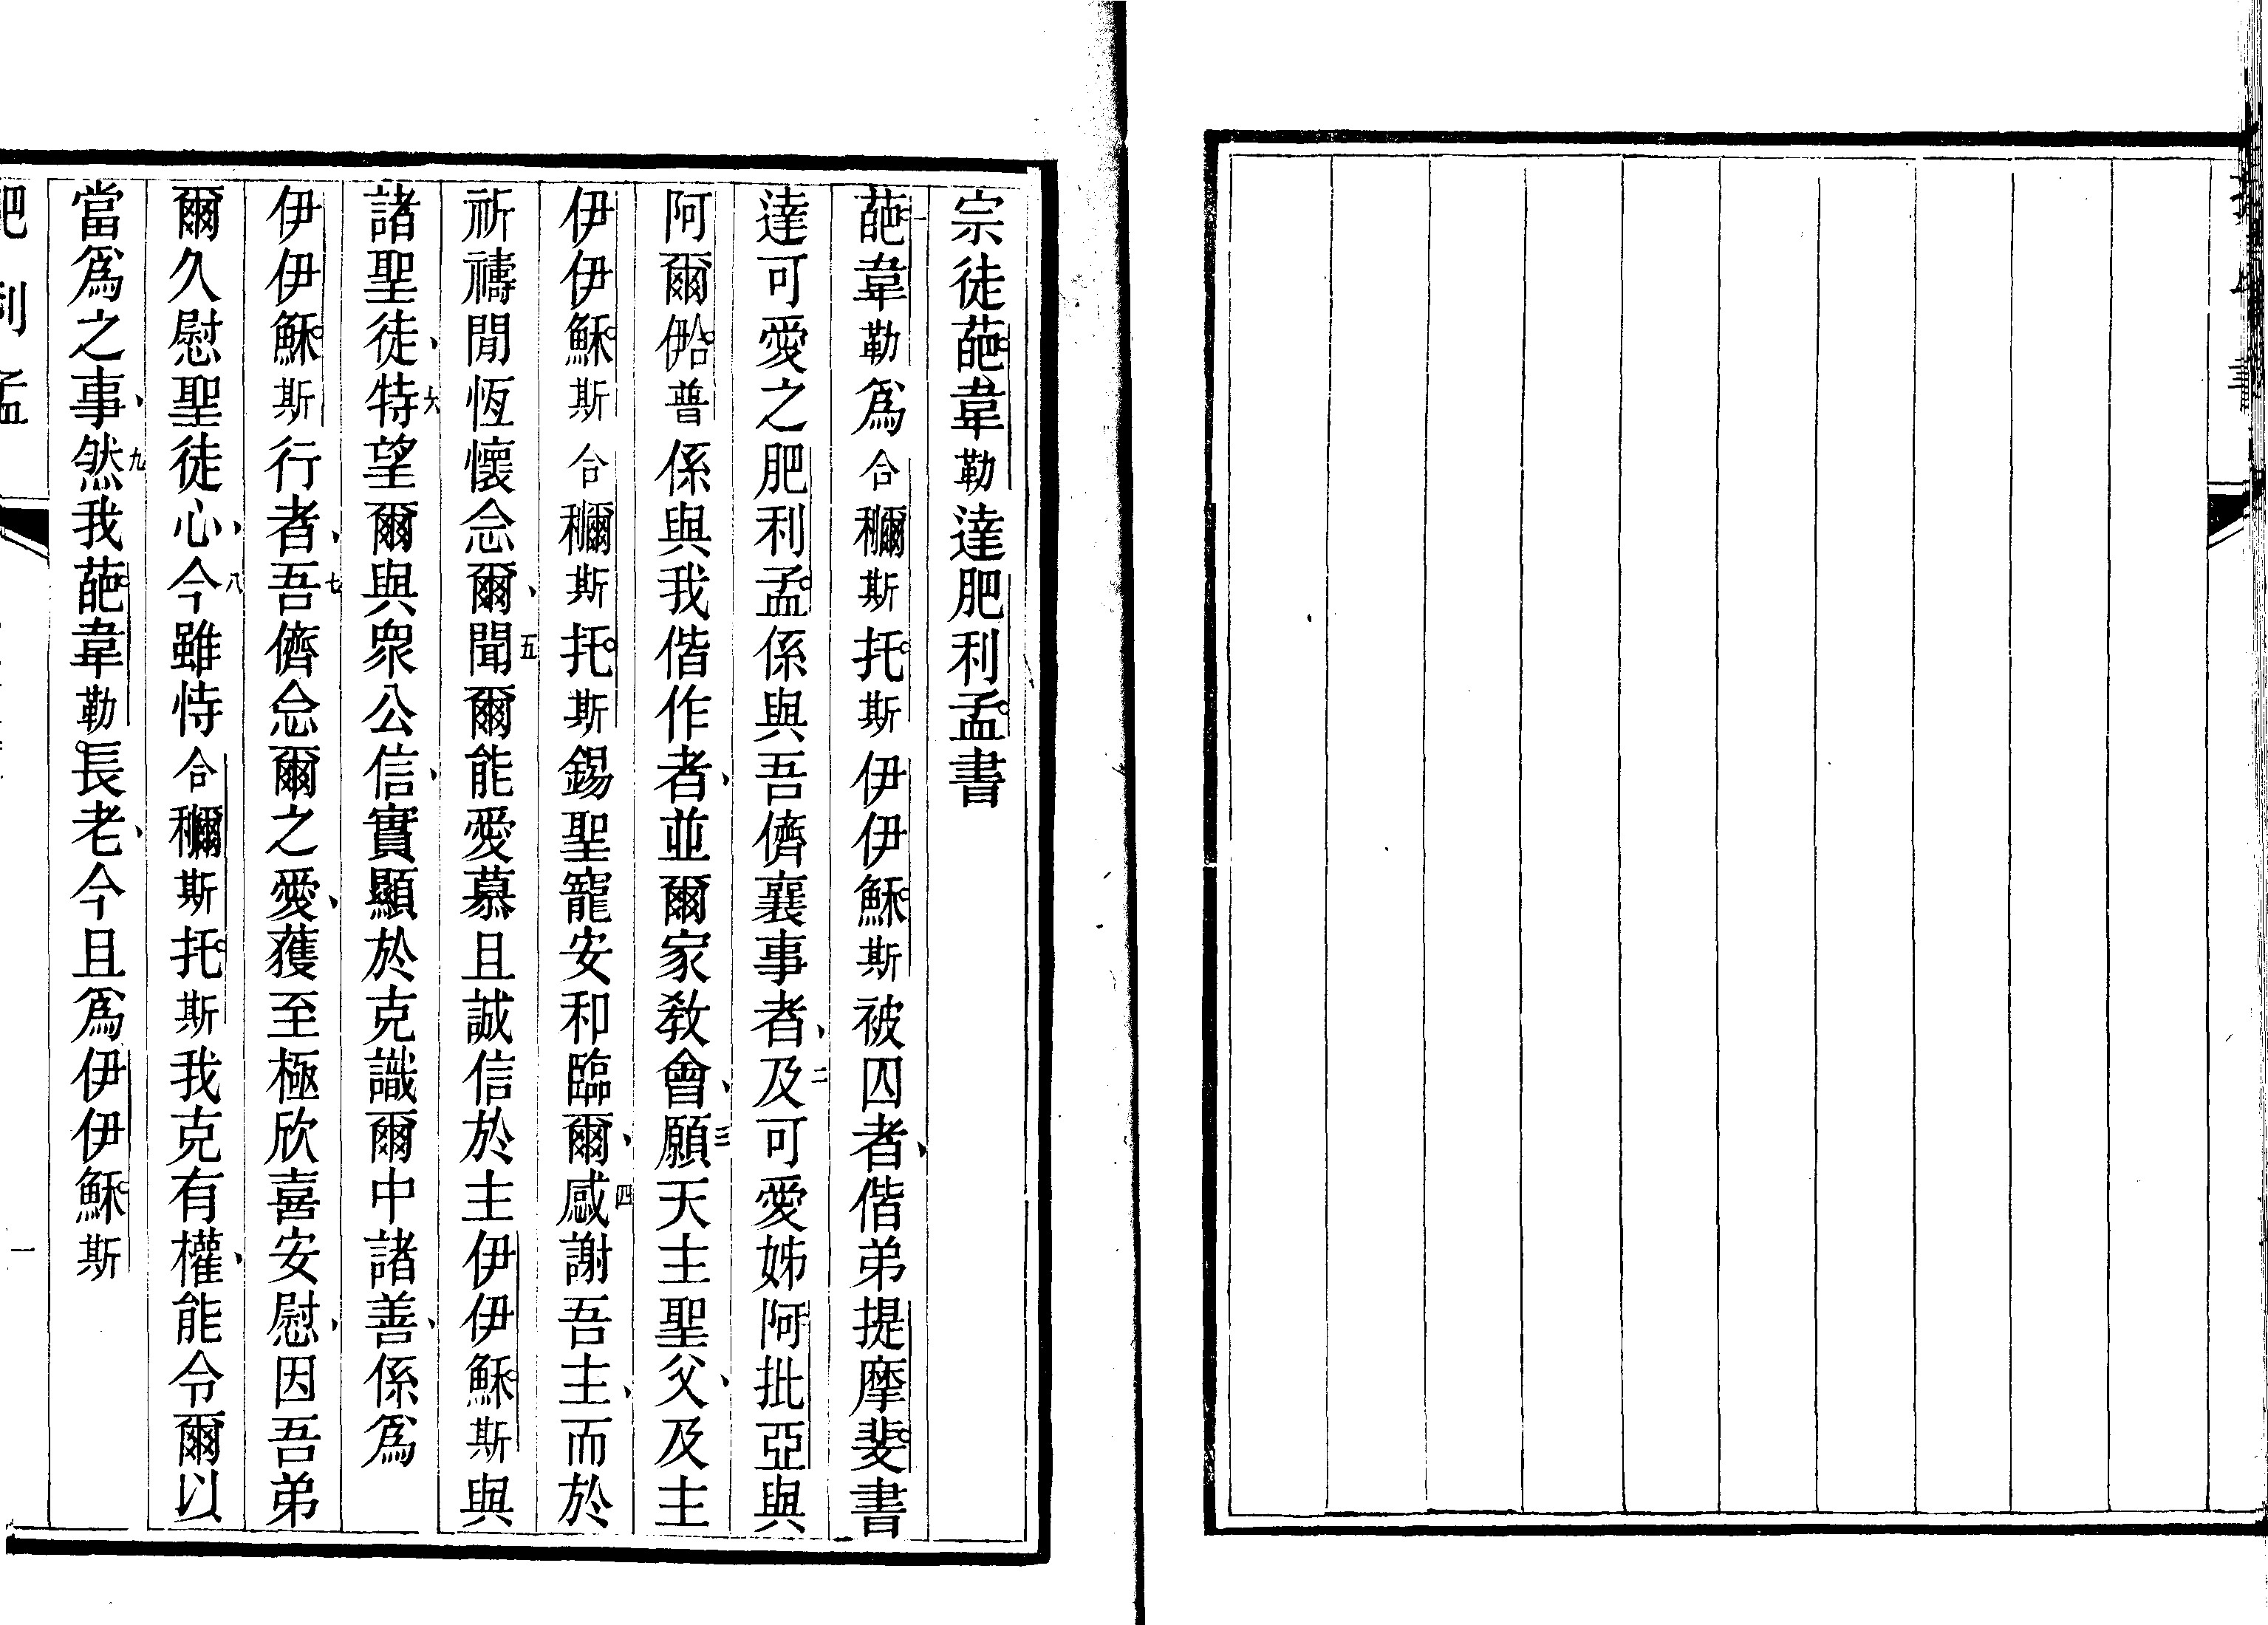 宗徒葩韋勒達肥利孟書
一葩韋勒爲合穪斯托斯伊伊穌斯被囚者、偕弟提摩斐書
達可愛之肥利孟係與吾儕襄事者、二及可愛姊阿批亞與
阿爾𠌥普係與我偕作者、並爾家敎會、三願天主聖父、及主
伊伊穌斯合穪斯托斯錫聖寵安和臨爾、四感謝吾主、而於
祈禱閒恆懷念爾、五聞爾能愛慕且誠信於主伊伊穌斯與
諸聖徒、六特望爾與衆公信、實顯於克識爾中諸善、係爲
伊伊穌斯行者、七吾儕念爾之愛、獲至極欣喜安慰、因吾弟
爾久慰聖徒心、八今雖恃合穪斯托斯我克有權、能令爾以
當爲之事、九然我葩韋勒長老、今且爲伊伊穌斯
肥利孟
一